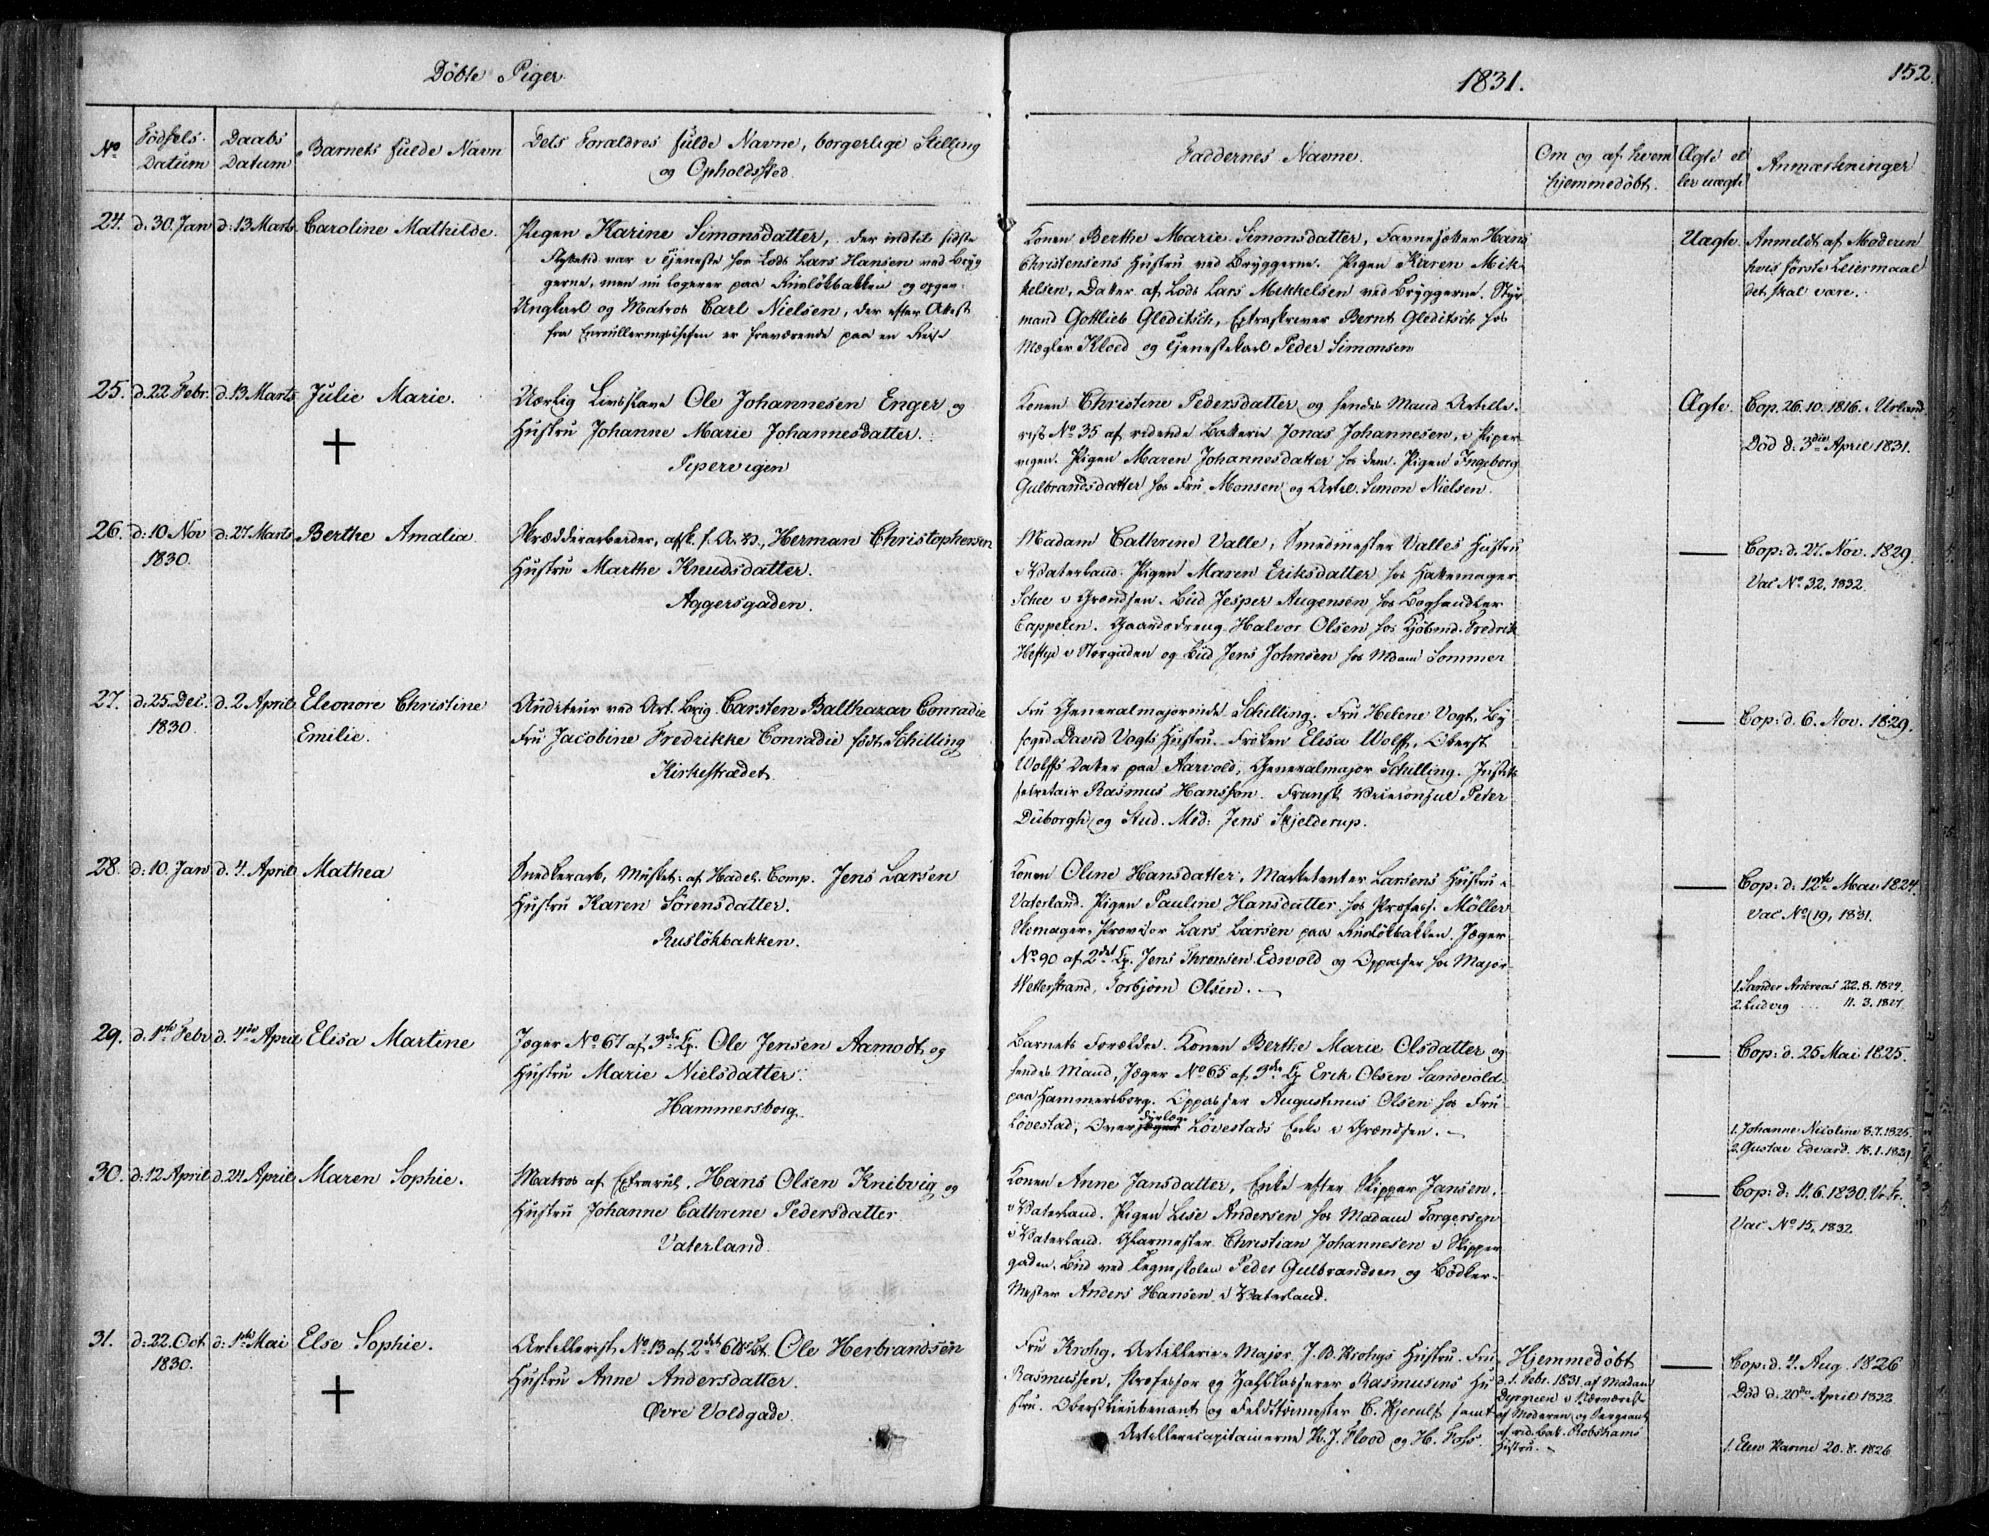 Döbte Piger
1831.
152.
No
Födsels Datum
Daabs Datum
Barnets fulde Navn
Dets Foraldres fulde Navne, borgerlige Stilling
og Opholdssted
Faddernes Navne
Om og af hvem hjemmedöbt.
Ægte el ler uægte
Anmærkninger
24. d. 30. Jan d. 13 Marts Caroline Mathilde.
Pigen Karine Simonsdatter, der indtil sidste
Flyttetid var i Tjeneste hos Lods Lars Hansen ved Bryg
gerne, men nu logerer paa Ruslökbakken og opgav
Ungkarl og Matros Carl Nielsen, der efter Attest
fra Enrulleringschefen er fraværende paa en Reise
Konen Berthe Marie Simonsdatter, Favnesætter Hans
Christensens Hustru ved Bryggerne. Pigen Karen Mik-
kelsen, Datter af Lods Lars Mikkelsen ved Bryggerne. Styr
mand Gottlieb Gleditsch, Extraskriver Bernt Gleditsch hos
Mægler Kloed og Tjenestekarl Peder Simonsen
Uægte. Anmeldt af Moderen
hvis förste Leiermaal
det skal være.
25. d. 22 Febr. d. 13 Marts Julie Marie.
Uærlig Livsslave Ole Johannesen Enger og
Hustru Johanne Marie Johannesdatter.
Pipervigen
Konen Christine Pedersdatter og hendes Mand Artille-
rist No 35 af ridende Batterie Jonas Johannesen, i Piper
vigen. Pigen Maren Johannesdatter hos dem. Pigen Ingeborg
Gulbrandsdatter hos Fru Monsen og Artil. Simon Nielsen.
Ægte. Cop. 26.10.1816. i Urland
Död d. 3die April 1831.
26. d: 10 Nov 1830. d: 27 Marts Berthe Amalia
Skrædderarbeider, afsk. f. A. B., Herman Christophersen
Hustru Marthe Knudsdatter.
Aggersgaden.
Madam Cathrine Valle, Smedmester Valles Hustru
i Vaterland. Pigen Maren Eriksdatter hos Hattemager
Schee i Grændsen. Bud Jesper Augensen hos Boghandler
Cappelen. Gaardsdreng Halvor Olsen hos Kjöbmd. Fredrik
Heftye i Storgaden og Bud Jens Johnsen hos Mdam Sommer
Cop: d. 27. Nov. 1829.
Vac No 32, 1832.
27. d. 25. Dec. 1830. d. 2 April Eleonore Christine
Emilie.
Auditeur ved Art. Brig. Carsten Balthazar Conradie
Fru Jacobine Fredrikke Conradie födt Schilling
Kirkestrædet
Fru Generalmajorinde Schilling. Fru Helene Vogt, By
foged David Vogts Hustru. Fröken Elisa Wolff, Oberst
Wolffs Datter paa Aarvold, Generalmajor Schilling. Justits
sekretair Rasmus Hansson. Fransk Viceconsul Peter
Düborgh og Stud. Med: Jens Skjelderup.
Cop: d. 6. Nov. 1829.
28. d: 10. Jan d. 4. April Mathea
Snedkerarb, Musket: af Hadel. Comp. Jens Larsen
Hustru Karen Sörensdatter.
Ruslökbakken.
Konen Oline Hansdatter, Marketenter Larsens Hustru i
Vaterland. Pigen Pauline Hansdatter hos Profess. Möller
Skomager, Provisor Lars Larsen paa Ruslökbakken. Jæger
No 90 af 2det Cp. Jens Thrensen Edwold og Oppasser hos Major
Wetterstrand, Torbjörn Olsen.
Cop: d: 12te Mai 1824.
Vac No 19, 1831.
1. Sander Andreas 22.8.1824.
2. Ludvig 11.3.1827.
29. d: 1ste Febr d. 4de April Elisa Martine
Jæger No 67 af 3die Cp. Ole Jensen Aamodt og
Hustru Marie Nielsdatter.
Hammersborg.
Barnets Forældre. Konen Berthe Marie Olsdatter og
hendes Mand, Jæger No 65 af 3die Cp Erik Olsen Sandvold
paa Hammersborg. Oppasser Augustinus Olsen hos Fru
Lövestad, Over Lövestads Enke i Grændsen.
Cop: d. 25 Mai 1825.
1. Johanne Nicoline 8.7.1825.
2. Gustav Edvard. 18.1.1829.
30. d: 12 April d. 24 April Maren Sophie.
Matros af Extrarul. Hans Olsen Knibvig og
Hustru Johanne Cathrine Pedersdatter
Vaterland.
Konen Anne Jansdatter, Enke efter Skipper Jansen,
i Vaterland. Pigen Lise Andersen hos Madam Torgersen
i Vaterland. Glarmester Christian Johannesen i Skipper
gaden. Bud ved Tegneskolen Peder Gulbrandsen og Bödker-
Mester Anders Hansen i Vaterland.
Cop: d: 11.6.1830. Vor Fr.
Vac No 15, 1832.
31. d: 22. Oct 1830. d: 1ste Mai Else Sophie.
Artillerist No 13 af 2det 6 Bt. Ole Herbrandsen
Hustru Anne Andersdatter.
Övre Voldgade.
Fru Krohg, Artillerie-Major J. B. Krohgs Hustru. Fru
Rasmussen, Professor og Rasmusens Hu
stru. Oberstlieutenant og Feldttöimester C. Kjerulf samt
Artilleriecapitainerne H. J. Flood og H. Foss.
Hjemmedöbt
d. 1. Febr. 1831. af Madam
Dyrgreen i Nærværelse
af Moderen og Sergeant
af rid. Bat. Robshams
Hustru.
Cop: d. 4 Aug. 1826
Död d. 20de April 1832
1. Elen Karine 20.8.1826